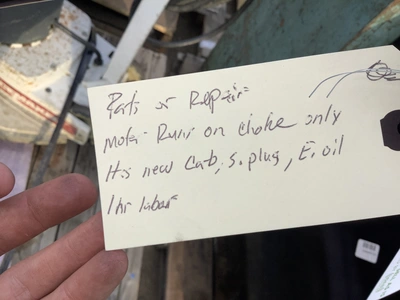 Parts or Repair
Motor Runs on choke only
Has new Carb, S. plug, E. oil
1 hr labor